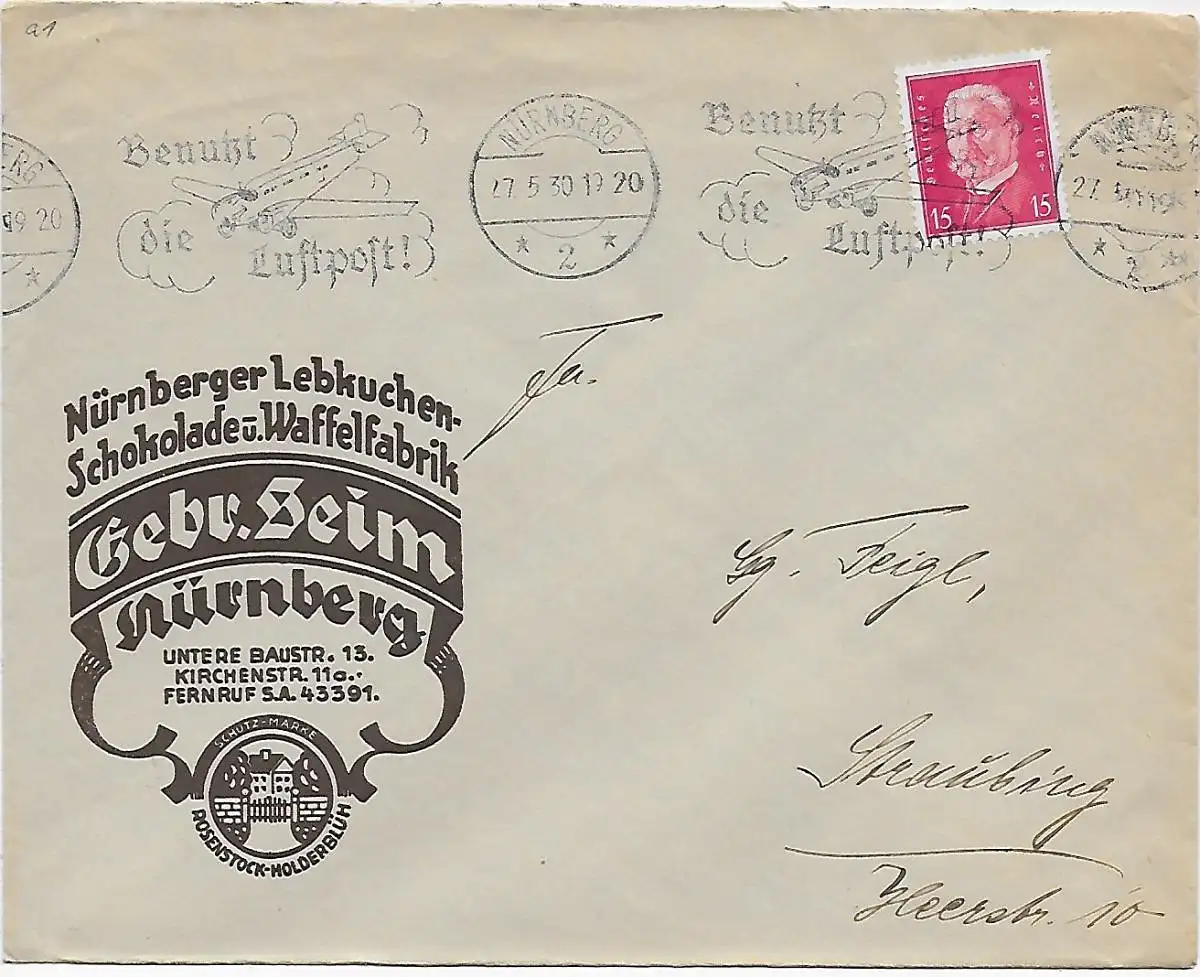 a1
Benutzt
die
Luftpost!
NÜRNBERG
27.5.30 19 20
* 2 *
Benutzt
die
Luftpost!
Deutsches Reich
15 15
19 20
*
27. 
* 2
Nürnberger Lebkuchen-
Schokolade u. Waffelfabrik
Gebr. Seim
Nürnberg
UNTERE BAUSTR. 13.
KIRCHENSTR. 11a.
FERNRUF S.A. 43391.
SCHUTZ-MARKE
ROSENSTOCK-HOLDERBLÜH
Fa.
Gg. Feigl,
Straubing
Heerstr. 10